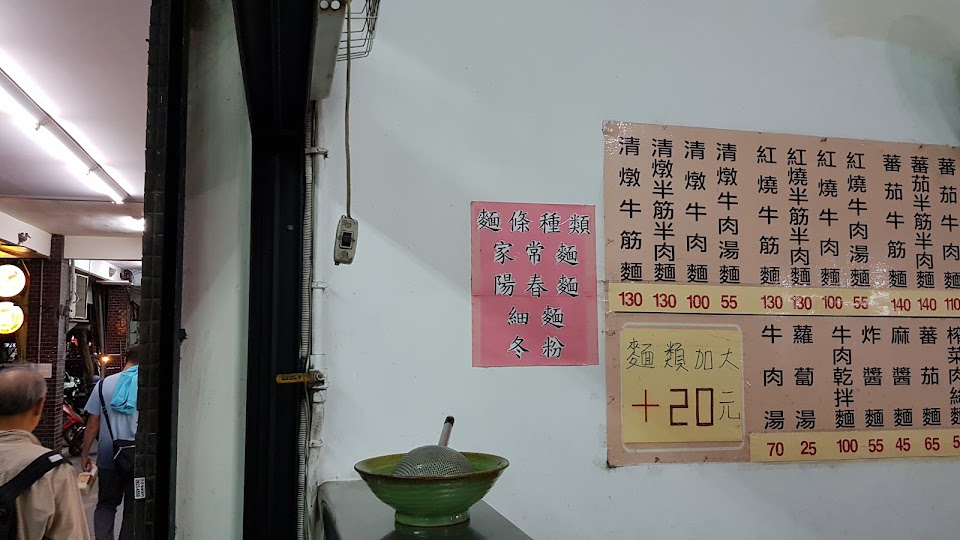 麵條種類
家常麵
陽春麵
細麵
冬粉
清燉牛筋麵
130
清燉半筋半肉麵
130
清燉牛肉麵
100
清燉牛肉湯麵
55
紅燒牛筋麵
130
紅燒半筋半肉麵
130
紅燒牛肉麵
100
紅燒牛肉湯麵
55
蕃茄牛筋麵
140
蕃茄半筋半肉麵
140
蕃茄牛肉麵
110
麵類加大
+20元
牛肉湯
70
蘿蔔湯
25
牛肉乾拌麵
100
炸醬麵
55
麻醬麵
45
蕃茄麵
65
榨菜肉絲麵